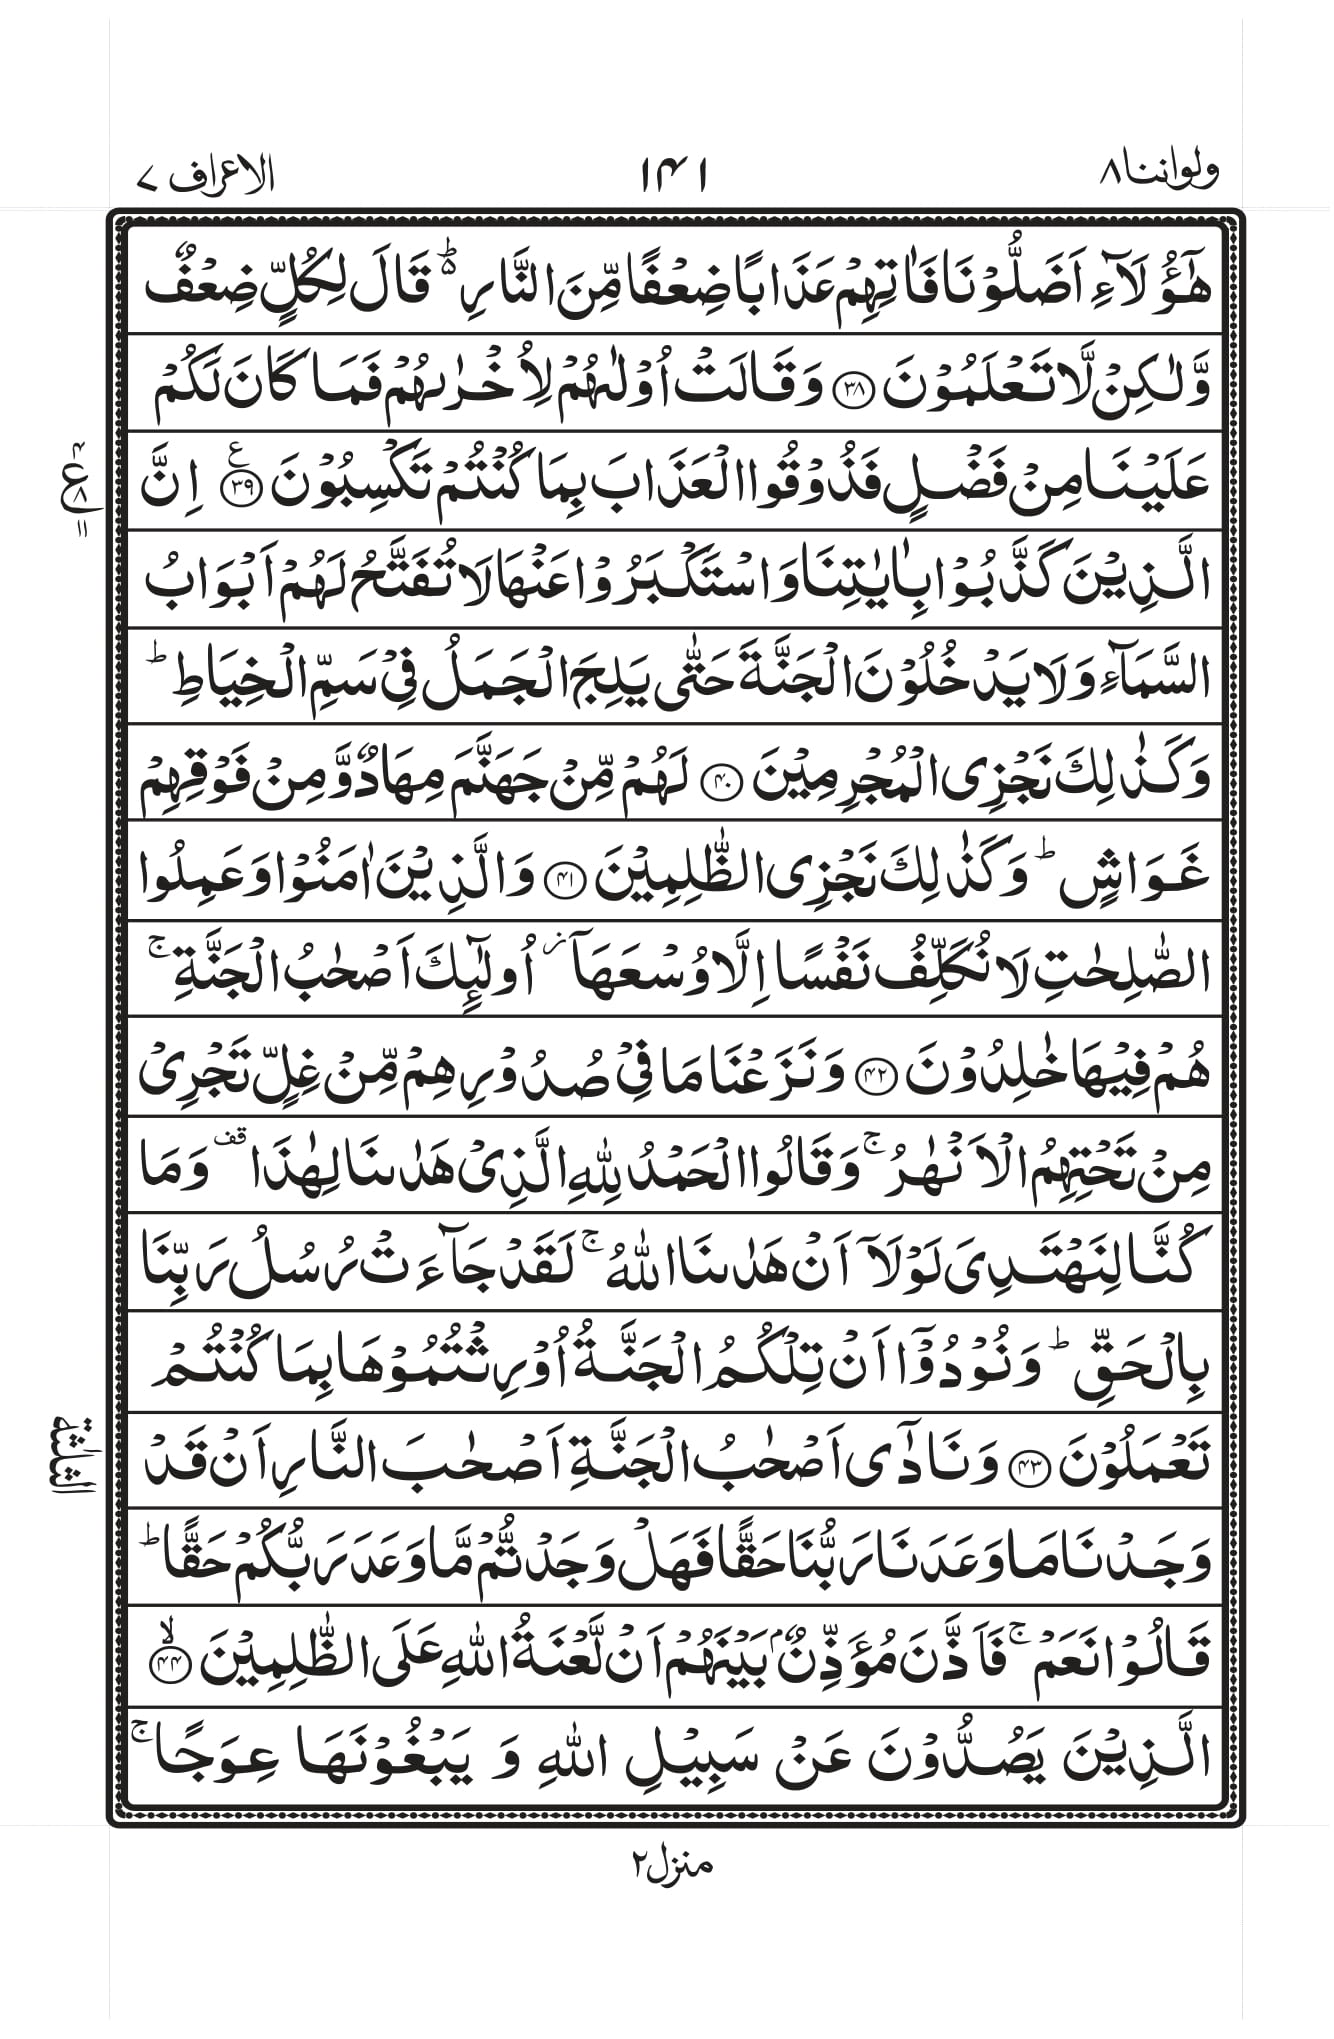 ولواننا ٨
١٤١
الاعراف ٧
هٰٓؤُلَآءِ اَضَلُّوْنَا فَاٰتِهِمْ عَذَابًا ضِعْفًا مِّنَ النَّارِ ؕ۬ قَالَ لِكُلٍّ ضِعْفٌ
وَّلٰكِنْ لَّا تَعْلَمُوْنَ ﴿٣٨﴾ وَقَالَتْ اُوْلٰىهُمْ لِاُخْرٰىهُمْ فَمَا كَانَ لَكُمْ
عَلَيْنَا مِنْ فَضْلٍ فَذُوْقُوا الْعَذَابَ بِمَا كُنْتُمْ تَكْسِبُوْنَ ﴿٣٩﴾ ع اِنَّ
٤
ع ٨
١١
الَّذِيْنَ كَذَّبُوْا بِاٰيٰتِنَا وَاسْتَكْبَرُوْا عَنْهَا لَا تُفَتَّحُ لَهُمْ اَبْوَابُ
السَّمَآءِ وَلَا يَدْخُلُوْنَ الْجَنَّةَ حَتّٰى يَلِجَ الْجَمَلُ فِيْ سَمِّ الْخِيَاطِ ؕ
وَكَذٰلِكَ نَجْزِى الْمُجْرِمِيْنَ ﴿٤٠﴾ لَهُمْ مِّنْ جَهَنَّمَ مِهَادٌ وَّمِنْ فَوْقِهِمْ
غَوَاشٍ ؕ وَكَذٰلِكَ نَجْزِى الظّٰلِمِيْنَ ﴿٤١﴾ وَالَّذِيْنَ اٰمَنُوْا وَعَمِلُوا
الصّٰلِحٰتِ لَا نُكَلِّفُ نَفْسًا اِلَّا وُسْعَهَاۤ ز اُولٰٓئِكَ اَصْحٰبُ الْجَنَّةِ ۚ
هُمْ فِيْهَا خٰلِدُوْنَ ﴿٤٢﴾ وَنَزَعْنَا مَا فِيْ صُدُوْرِهِمْ مِّنْ غِلٍّ تَجْرِيْ
مِنْ تَحْتِهِمُ الْاَنْهٰرُ ۚ وَقَالُوا الْحَمْدُ لِلّٰهِ الَّذِيْ هَدٰىنَا لِهٰذَا قف وَمَا
كُنَّا لِنَهْتَدِيَ لَوْلَاۤ اَنْ هَدٰىنَا اللّٰهُ ۚ لَقَدْ جَآءَتْ رُسُلُ رَبِّنَا
بِالْحَقِّ ؕ وَنُوْدُوْۤا اَنْ تِلْكُمُ الْجَنَّةُ اُوْرِثْتُمُوْهَا بِمَا كُنْتُمْ
تَعْمَلُوْنَ ﴿٤٣﴾ وَنَادٰۤى اَصْحٰبُ الْجَنَّةِ اَصْحٰبَ النَّارِ اَنْ قَدْ
الثلثة
وَجَدْنَا مَا وَعَدَنَا رَبُّنَا حَقًّا فَهَلْ وَجَدْتُّمْ مَّا وَعَدَ رَبُّكُمْ حَقًّا ؕ
قَالُوْا نَعَمْ ۚ فَاَذَّنَ مُؤَذِّنٌۢ بَيْنَهُمْ اَنْ لَّعْنَةُ اللّٰهِ عَلَى الظّٰلِمِيْنَ ۙ﴿٤٤﴾
الَّذِيْنَ يَصُدُّوْنَ عَنْ سَبِيْلِ اللّٰهِ وَ يَبْغُوْنَهَا عِوَجًا ۚ
منزل ٢